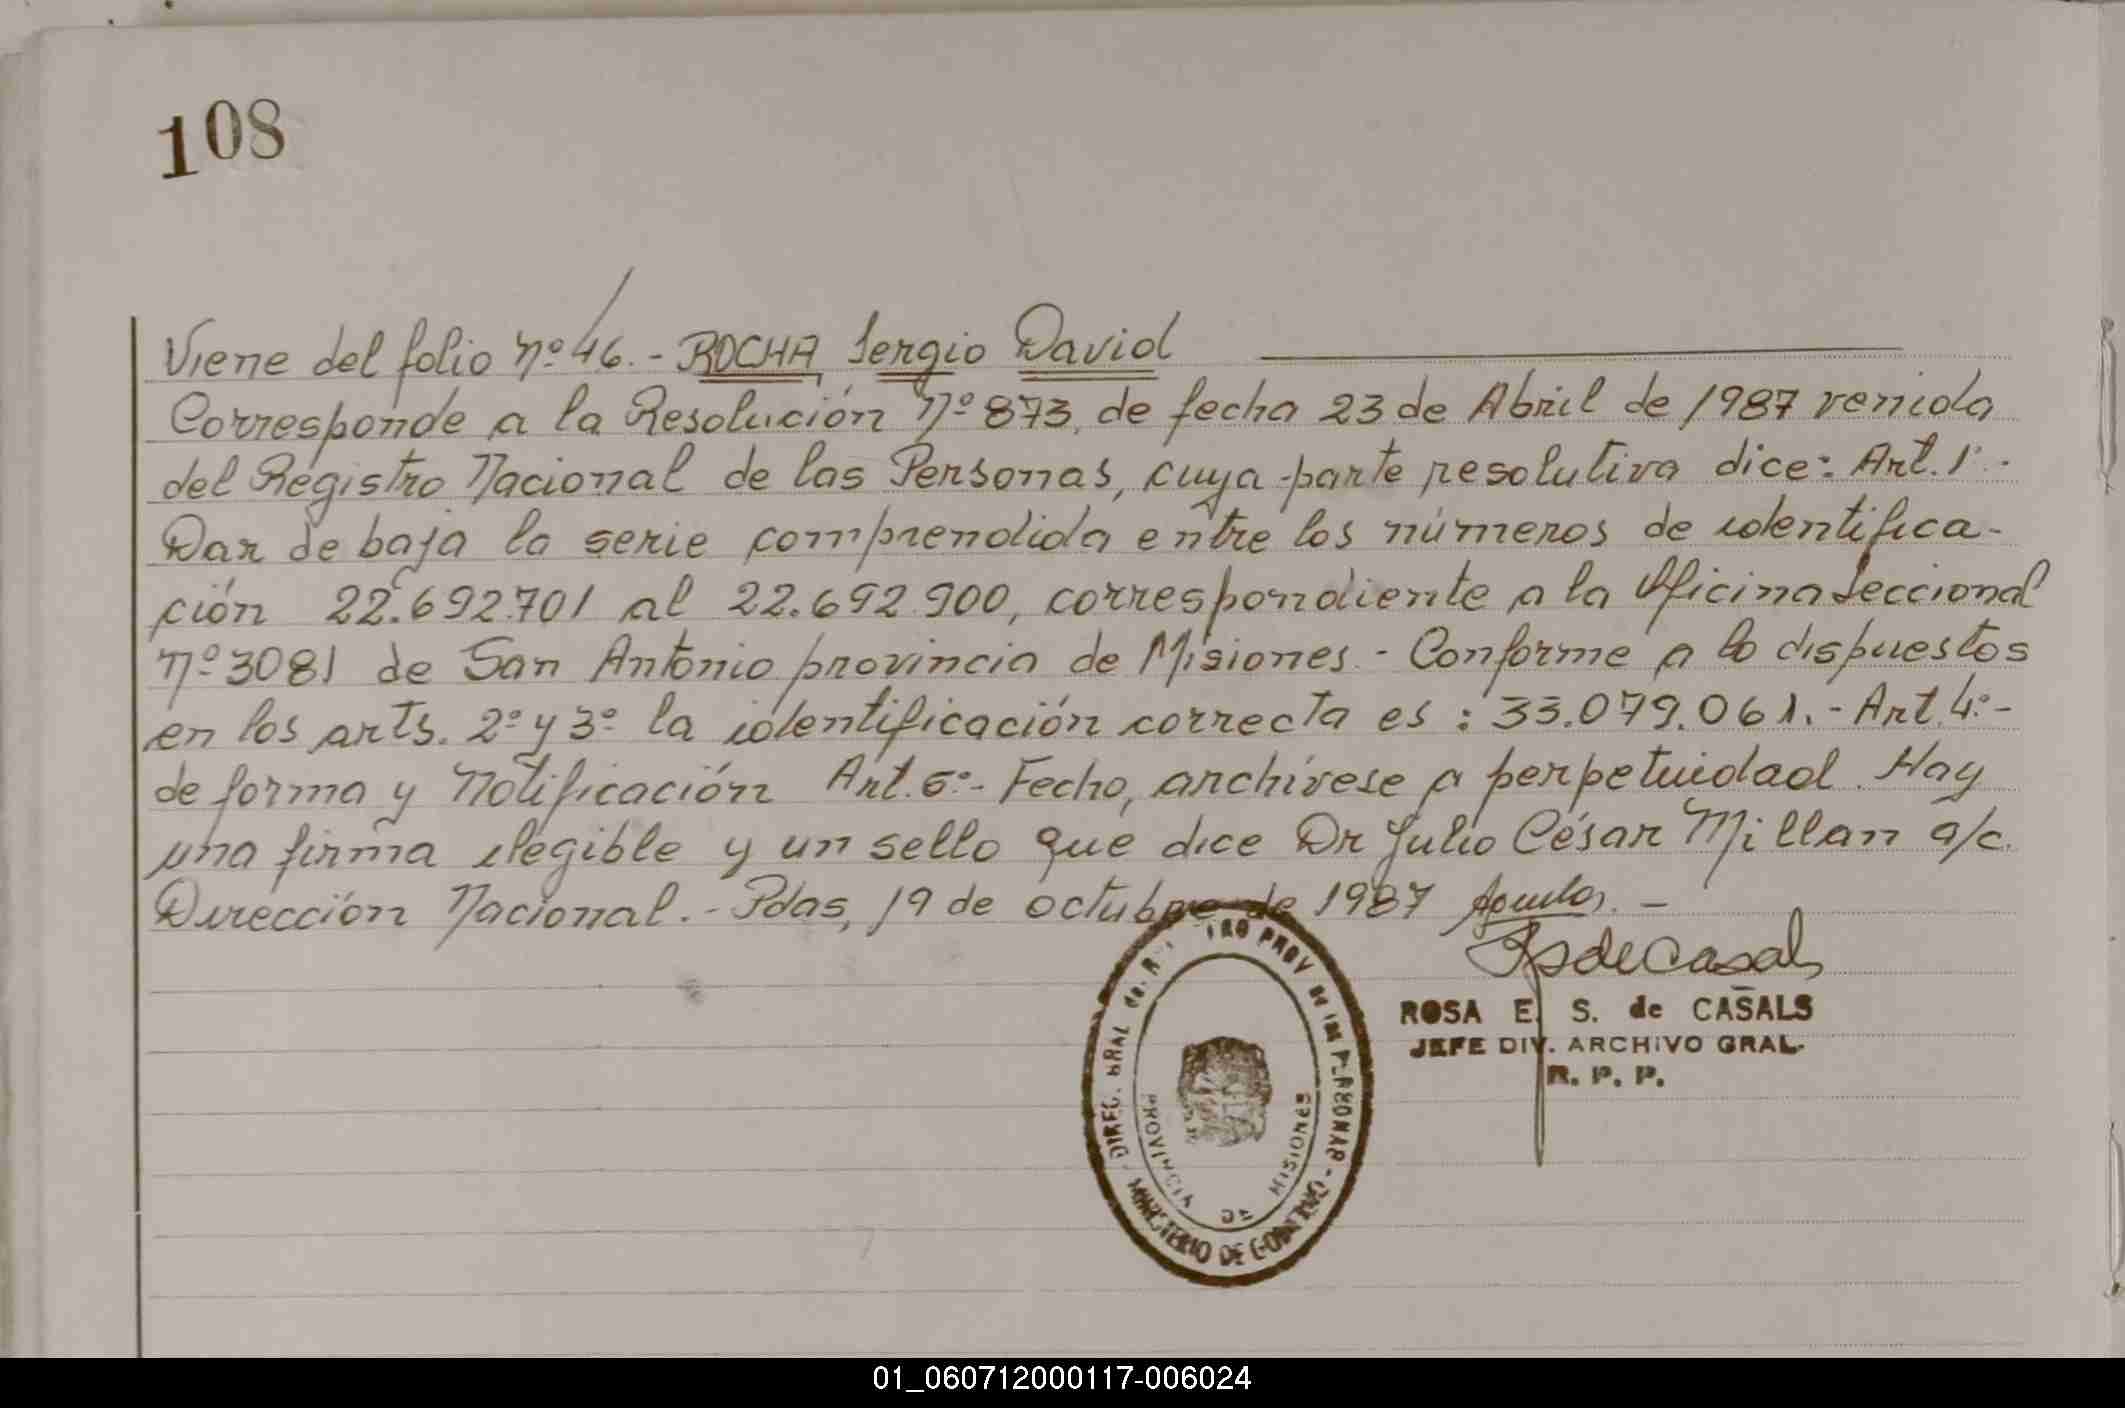 108
Viene del folio Nº 46.- ROCHA, Sergio David
Corresponde a la Resolución Nº 873, de fecha 23 de Abril de 1987 venida
del Registro Nacional de las Personas, cuya parte resolutiva dice: Art. 1º.-
Dar de baja la serie comprendida entre los números de identifica-
ción 22.692.701 al 22.692.900, correspondiente a la Oficina Seccional
Nº 3081 de San Antonio provincia de Misiones.- Conforme a lo dispuestos
en los arts. 2º y 3º la identificación correcta es: 33.079.061.- Art. 4º.-
de forma y Notificación Art. 5º.- Fecho, archívese a perpetuidad. Hay
una firma ilegible y un sello que dice Dr Julio César Millan a/c.
Dirección Nacional.- Pdas, 19 de octubre de 1987
ROSA E. S. de CASALS
JEFE DIV. ARCHIVO GRAL.
R. P. P.
DIREC. GRAL PROV DE LAS PERSONAS - MINISTERIO DE GOBIERNO
PROVINCIA DE MISIONES
01_060712000117-006024